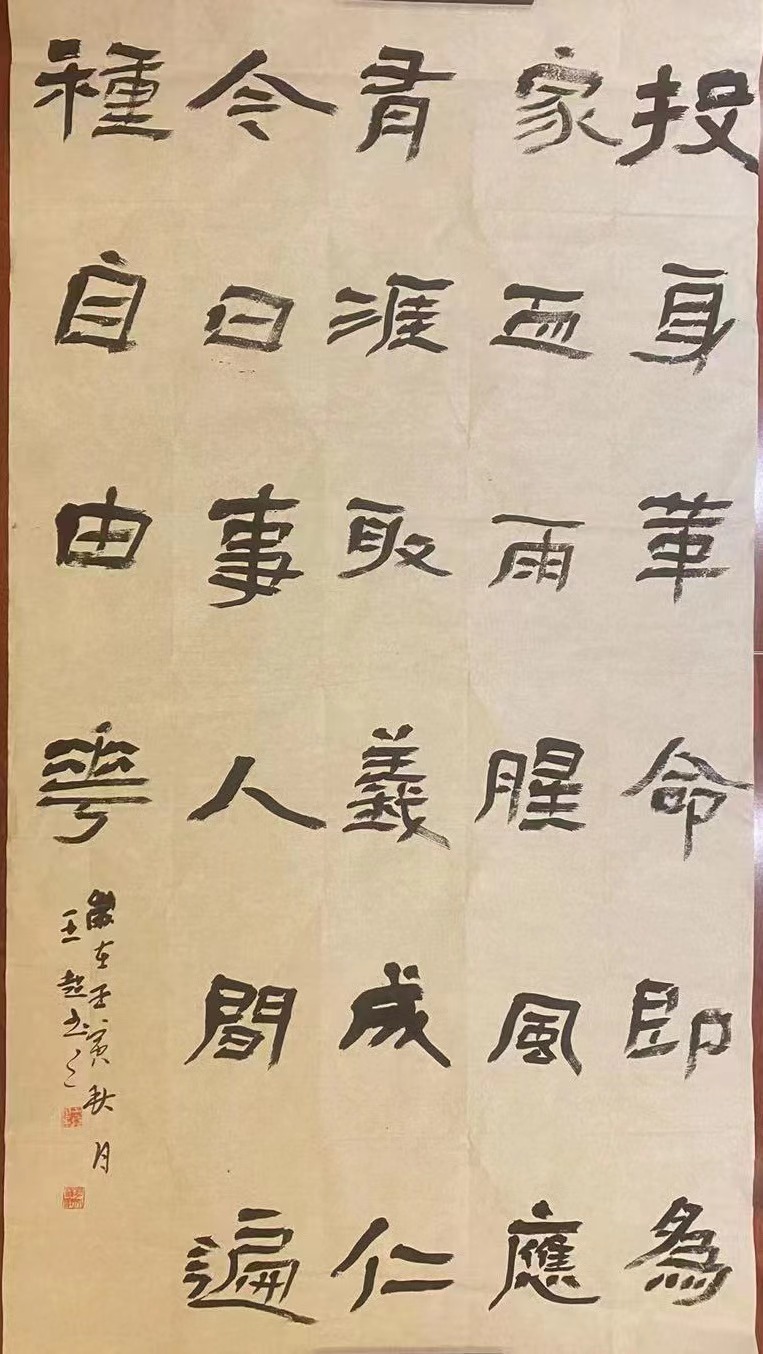 投身革命即為
家血雨腥風應
有涯取義成仁
今日事人間遍
種自由花
歲在壬寅秋月
王超书之